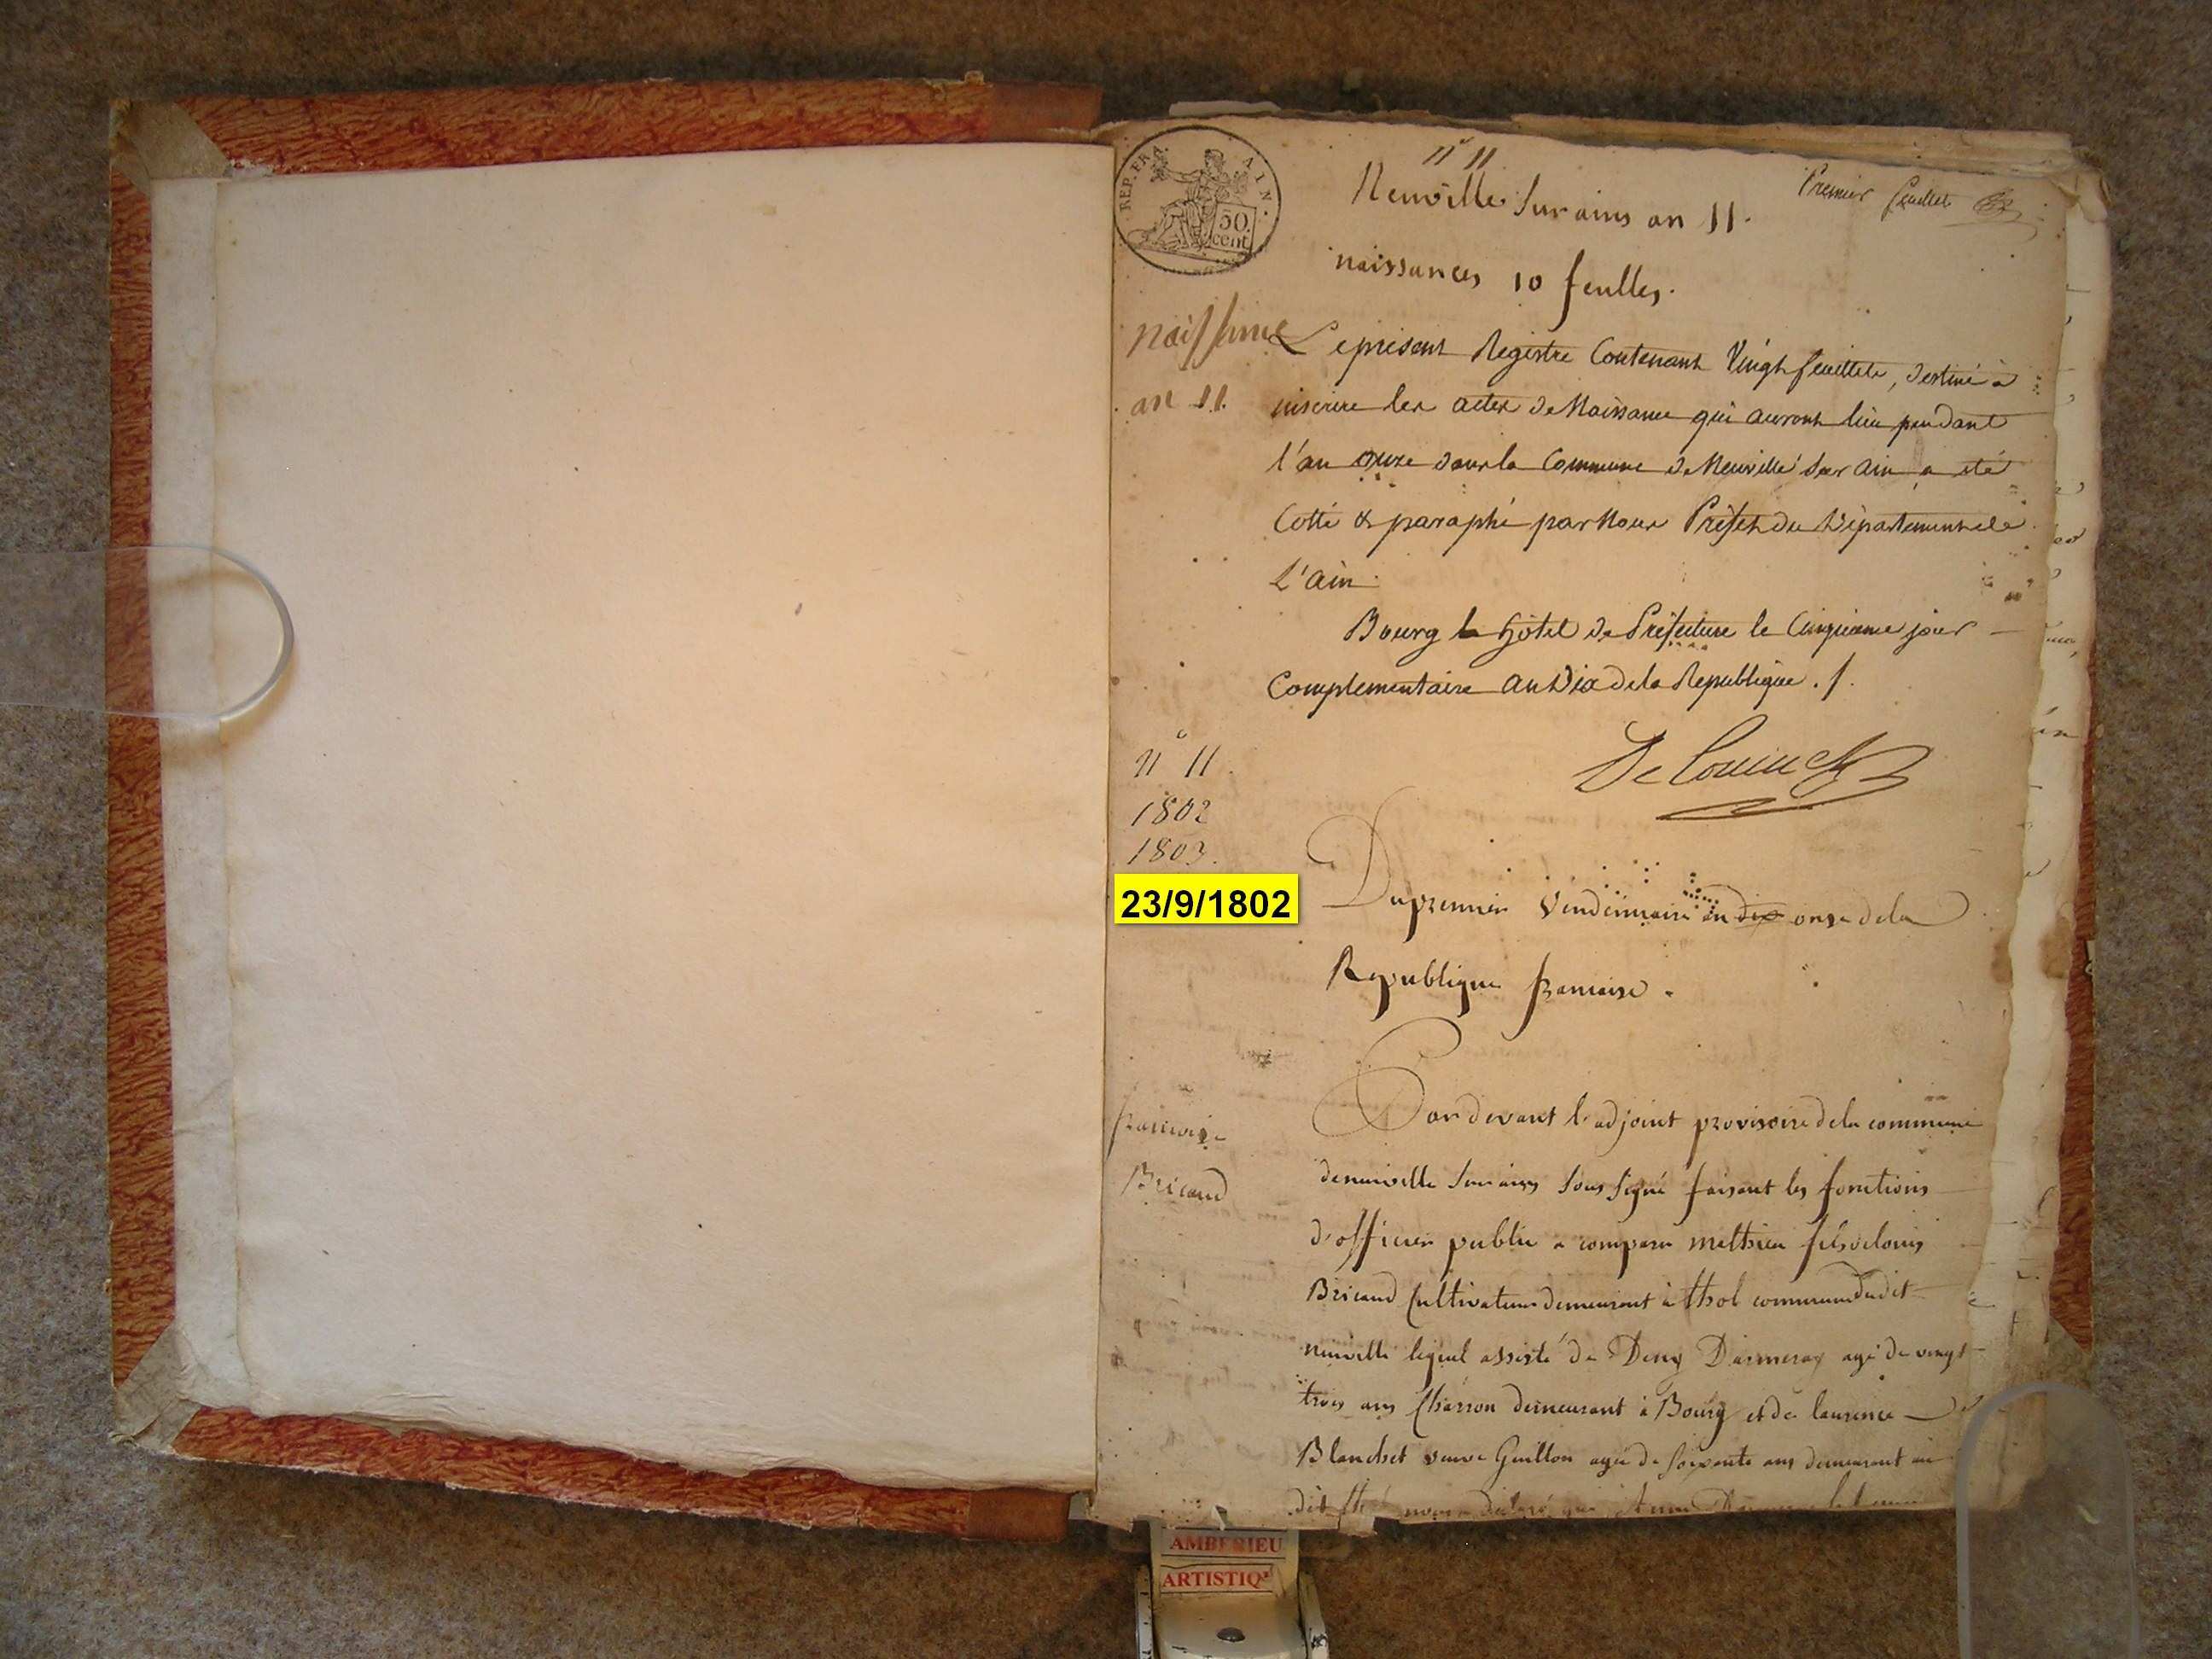 REP. FRA. AIN.
50 cent
n° 11
Neuville sur ains an 11.
Premier feuillet
naissances 10 feulles.
naissance
an 11.
Le présent Registre Contenant Vingt feuillets, destiné à
inscrire les actes de Naissance qui auront lieu pendant
l'an onze dans la Commune de Neuville sur ain a été
Cotté & paraphé par Nous Préfet du Département de
L'ain.
Bourg hotel de Préfecture le Cinquieme jour
Complementaire an Dix de la Republique.
n° 11.
1802
1803.
23/9/1802
Du premier Vendemiaire an dix onze de la
Republique francaise.
francoise
Bricaud
Par devant l'adjoint provisoire de la commune
de neuville sur ains sous signé faisant les fonctions
d'officier public a comparu mathieu fils de louis
Bricaud Cultivateur demeurant à thol commune dudit
neuville lequel assisté de Deny Darmeray agé de vingt
trois ans Charron demeurant à Bourg et de laurence
Blanchet veuve Guillon agée de soixante ans demeurant au
dit nous a declaré que Anne
AMBERIEU
ARTISTIQ